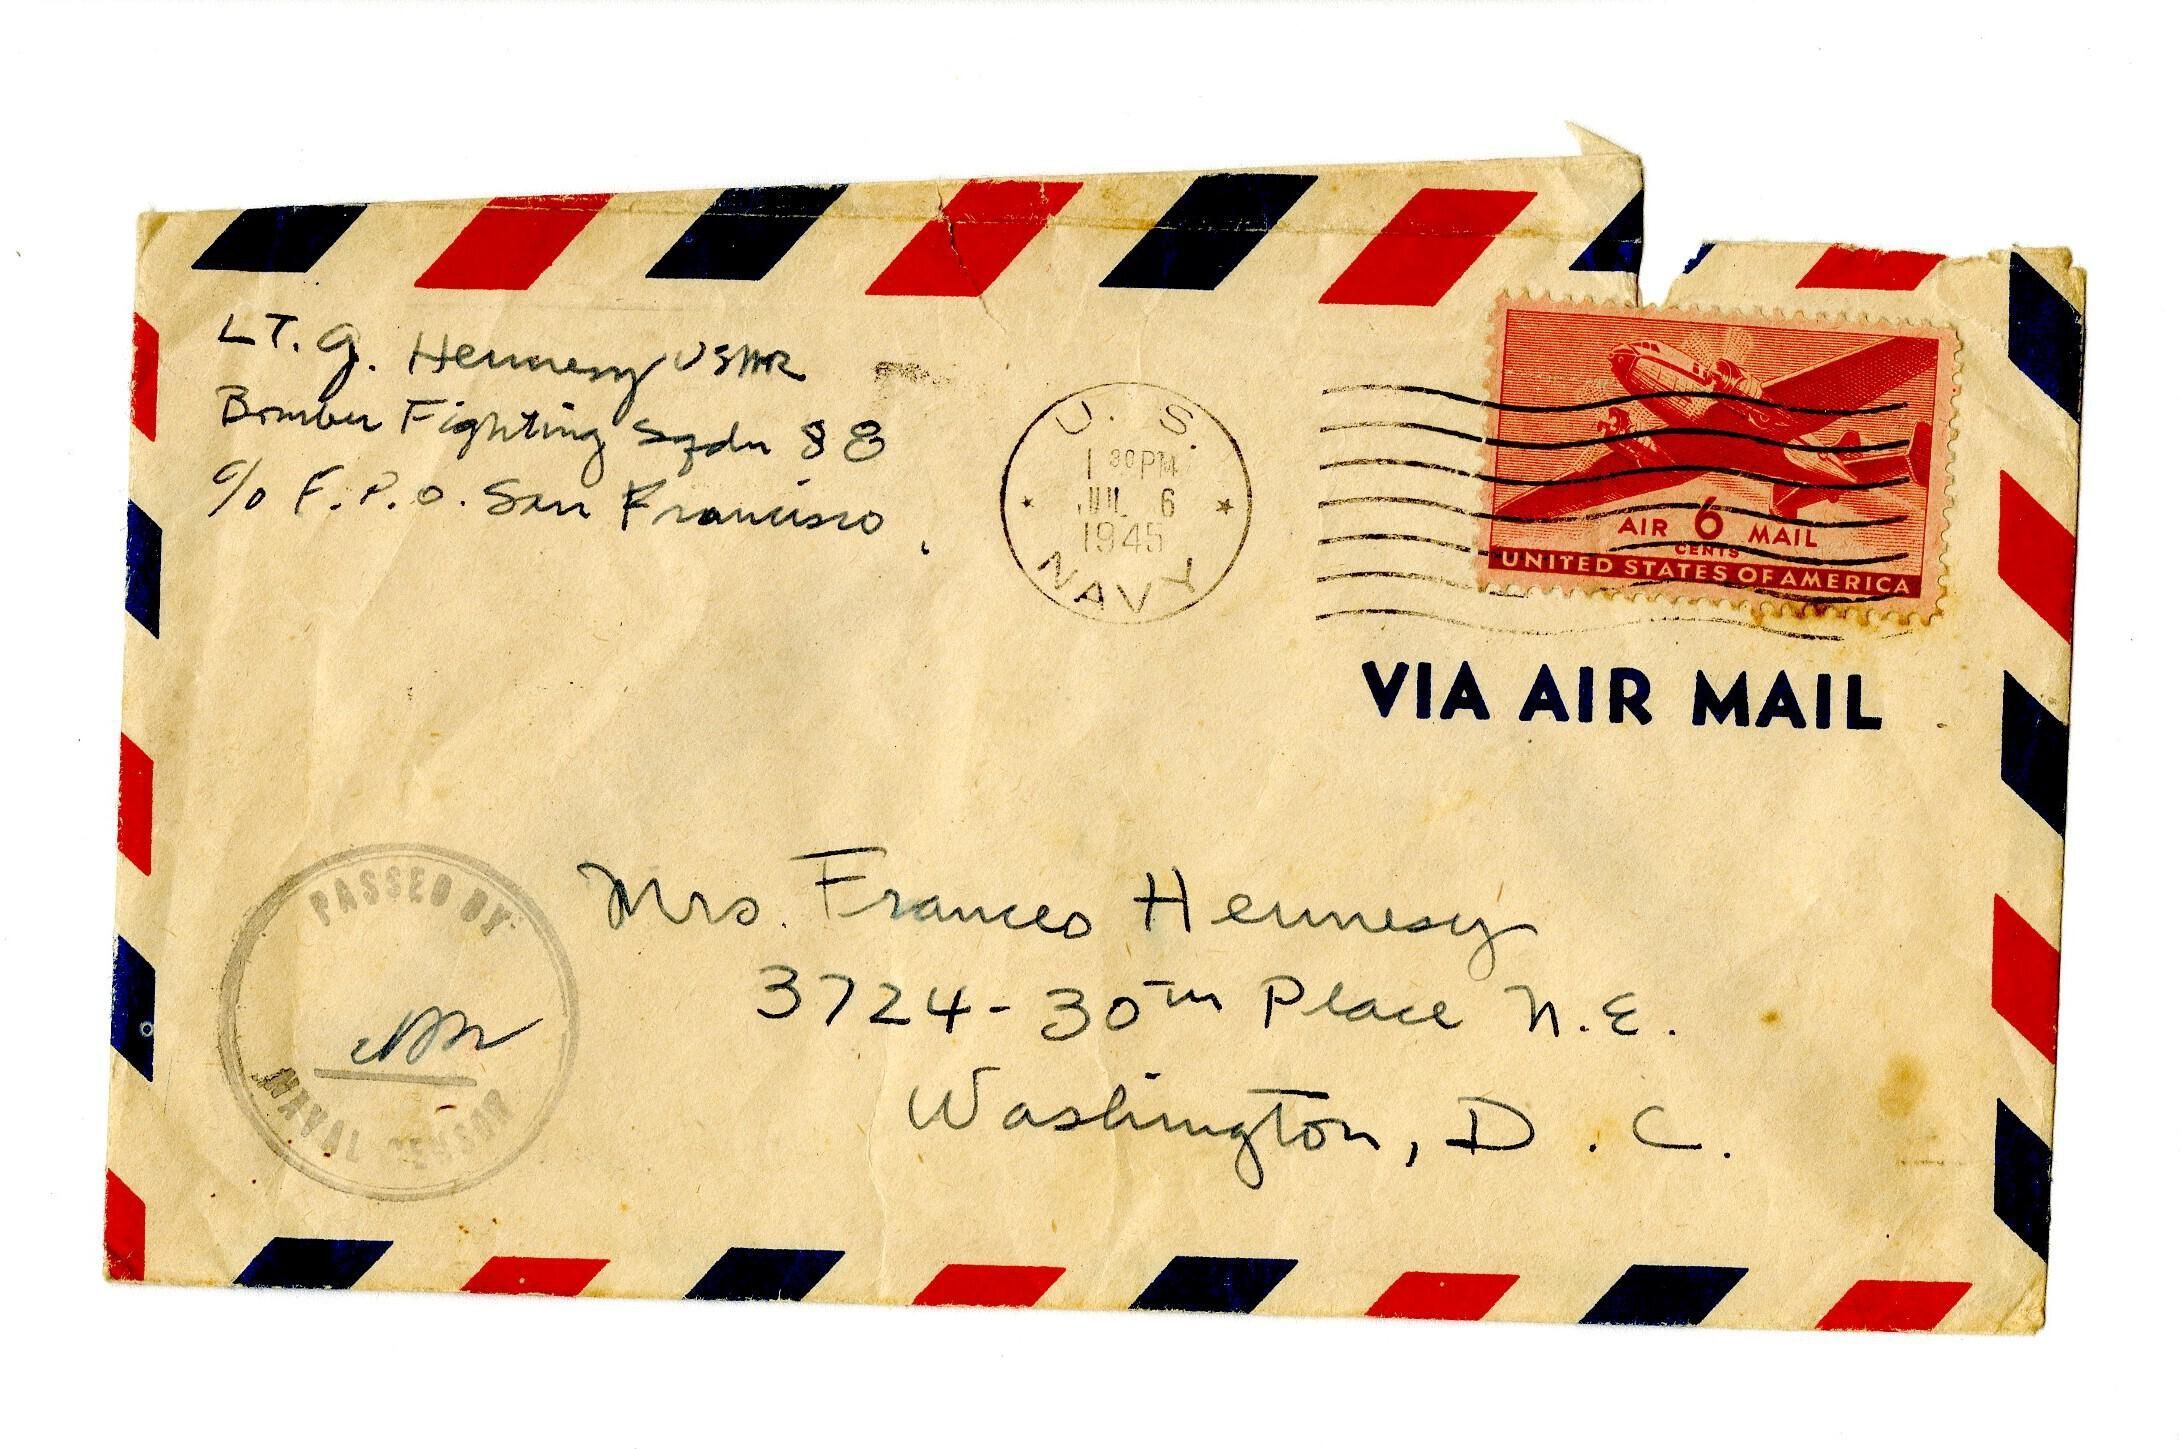 LT. J. Hennesy USNR
Bomber Fighting Sqdn 88
c/o F.P.O. San Francisco
U. S.
1 30 PM
JUL 6
1945
NAVY
AIR 6 MAIL
CENTS
UNITED STATES OF AMERICA
VIA AIR MAIL
Mrs. Frances Hennesy
3724-30th Place N.E.
Washington, D.C.
PASSED BY
NAVAL CENSOR